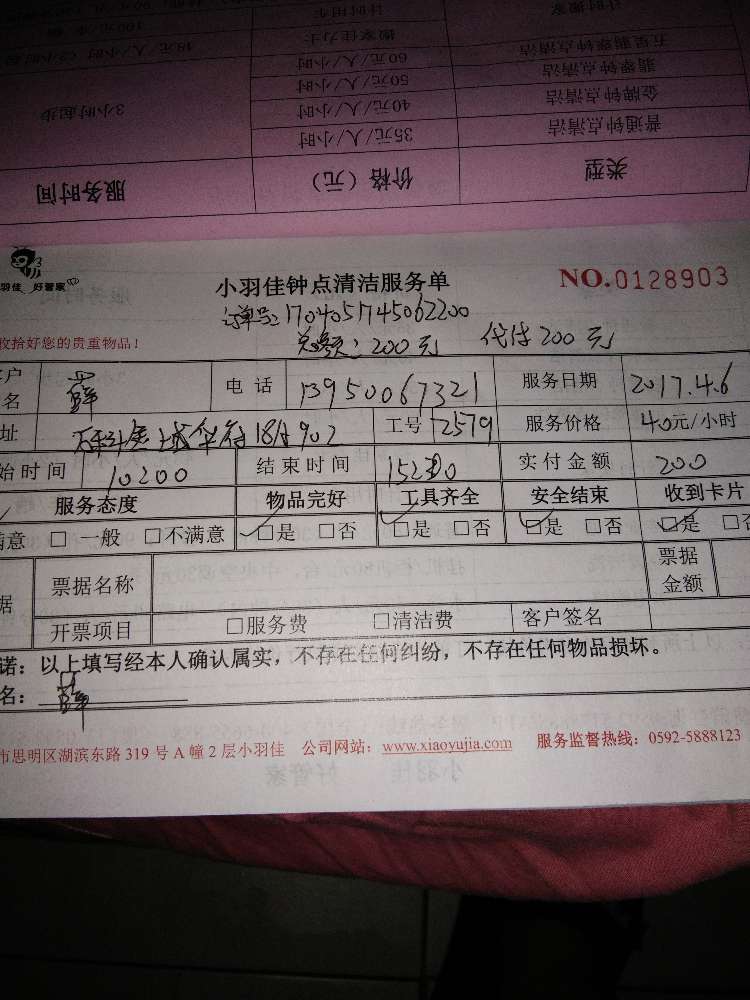 计时搬家 计时用车
搬家佳力士
五星翡翠钟点清洁 60元/人/小时
翡翠钟点清洁 50元/人/小时
金牌钟点清洁 40元/人/小时 3小时起步
普通钟点清洁 35元/人/小时
类型 价格（元） 服务时间
羽佳 好管家
小羽佳钟点清洁服务单 NO.0128903
订单号:170405745062200
总额:200元 代付200元
收拾好您的贵重物品！
客户名 薛 电话 13950067321 服务日期 2017.4.6
址 18 902 工号 2579 服务价格 40元/小时
始时间 10:00 结束时间 实付金额 200
服务态度 物品完好 工具齐全 安全结束 收到卡片
满意 □一般 □不满意 □是 □否 □是 □否 □是 □否 □是 □否
据 票据名称 票据金额
开票项目 □服务费 □清洁费 客户签名
诺：以上填写经本人确认属实，不存在任何纠纷，不存在任何物品损坏。
名：薛
市思明区湖滨东路319号A幢2层小羽佳 公司网站：www.xiaoyujia.com 服务监督热线：0592-5888123